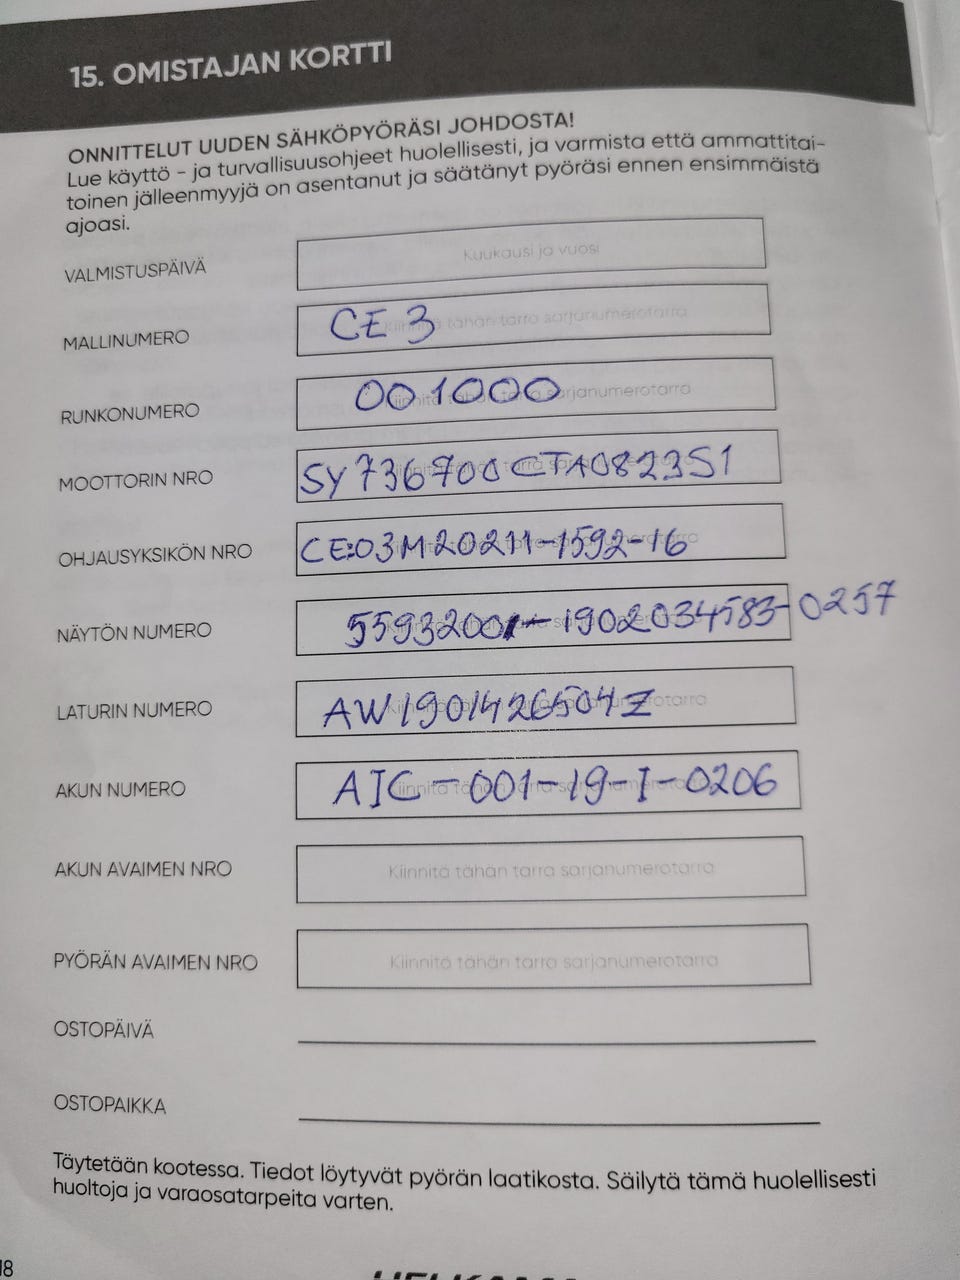 15. OMISTAJAN KORTTI
ONNITTELUT UUDEN SÄHKÖPYÖRÄSI JOHDOSTA!
Lue käyttö - ja turvallisuusohjeet huolellisesti, ja varmista että ammattitai-
toinen jälleenmyyjä on asentanut ja säätänyt pyöräsi ennen ensimmäistä
ajoasi.
VALMISTUSPÄIVÄ Kuukausi ja vuosi
MALLINUMERO CE 3 Kiinnitä tähän tarra sarjanumerotarra
RUNKONUMERO 001000 Kiinnitä tähän tarra sarjanumerotarra
MOOTTORIN NRO SY736700CTA0823S1
OHJAUSYKSIKÖN NRO CE:03M20211-1592-16
NÄYTÖN NUMERO 55932001-1902034583-0257
LATURIN NUMERO AW1901426504Z
AKUN NUMERO AIC-001-19-I-0206
AKUN AVAIMEN NRO Kiinnitä tähän tarra sarjanumerotarra
PYÖRÄN AVAIMEN NRO Kiinnitä tähän tarra sarjanumerotarra
OSTOPÄIVÄ
OSTOPAIKKA
Täytetään kootessa. Tiedot löytyvät pyörän laatikosta. Säilytä tämä huolellisesti
huoltoja ja varaosatarpeita varten.
18